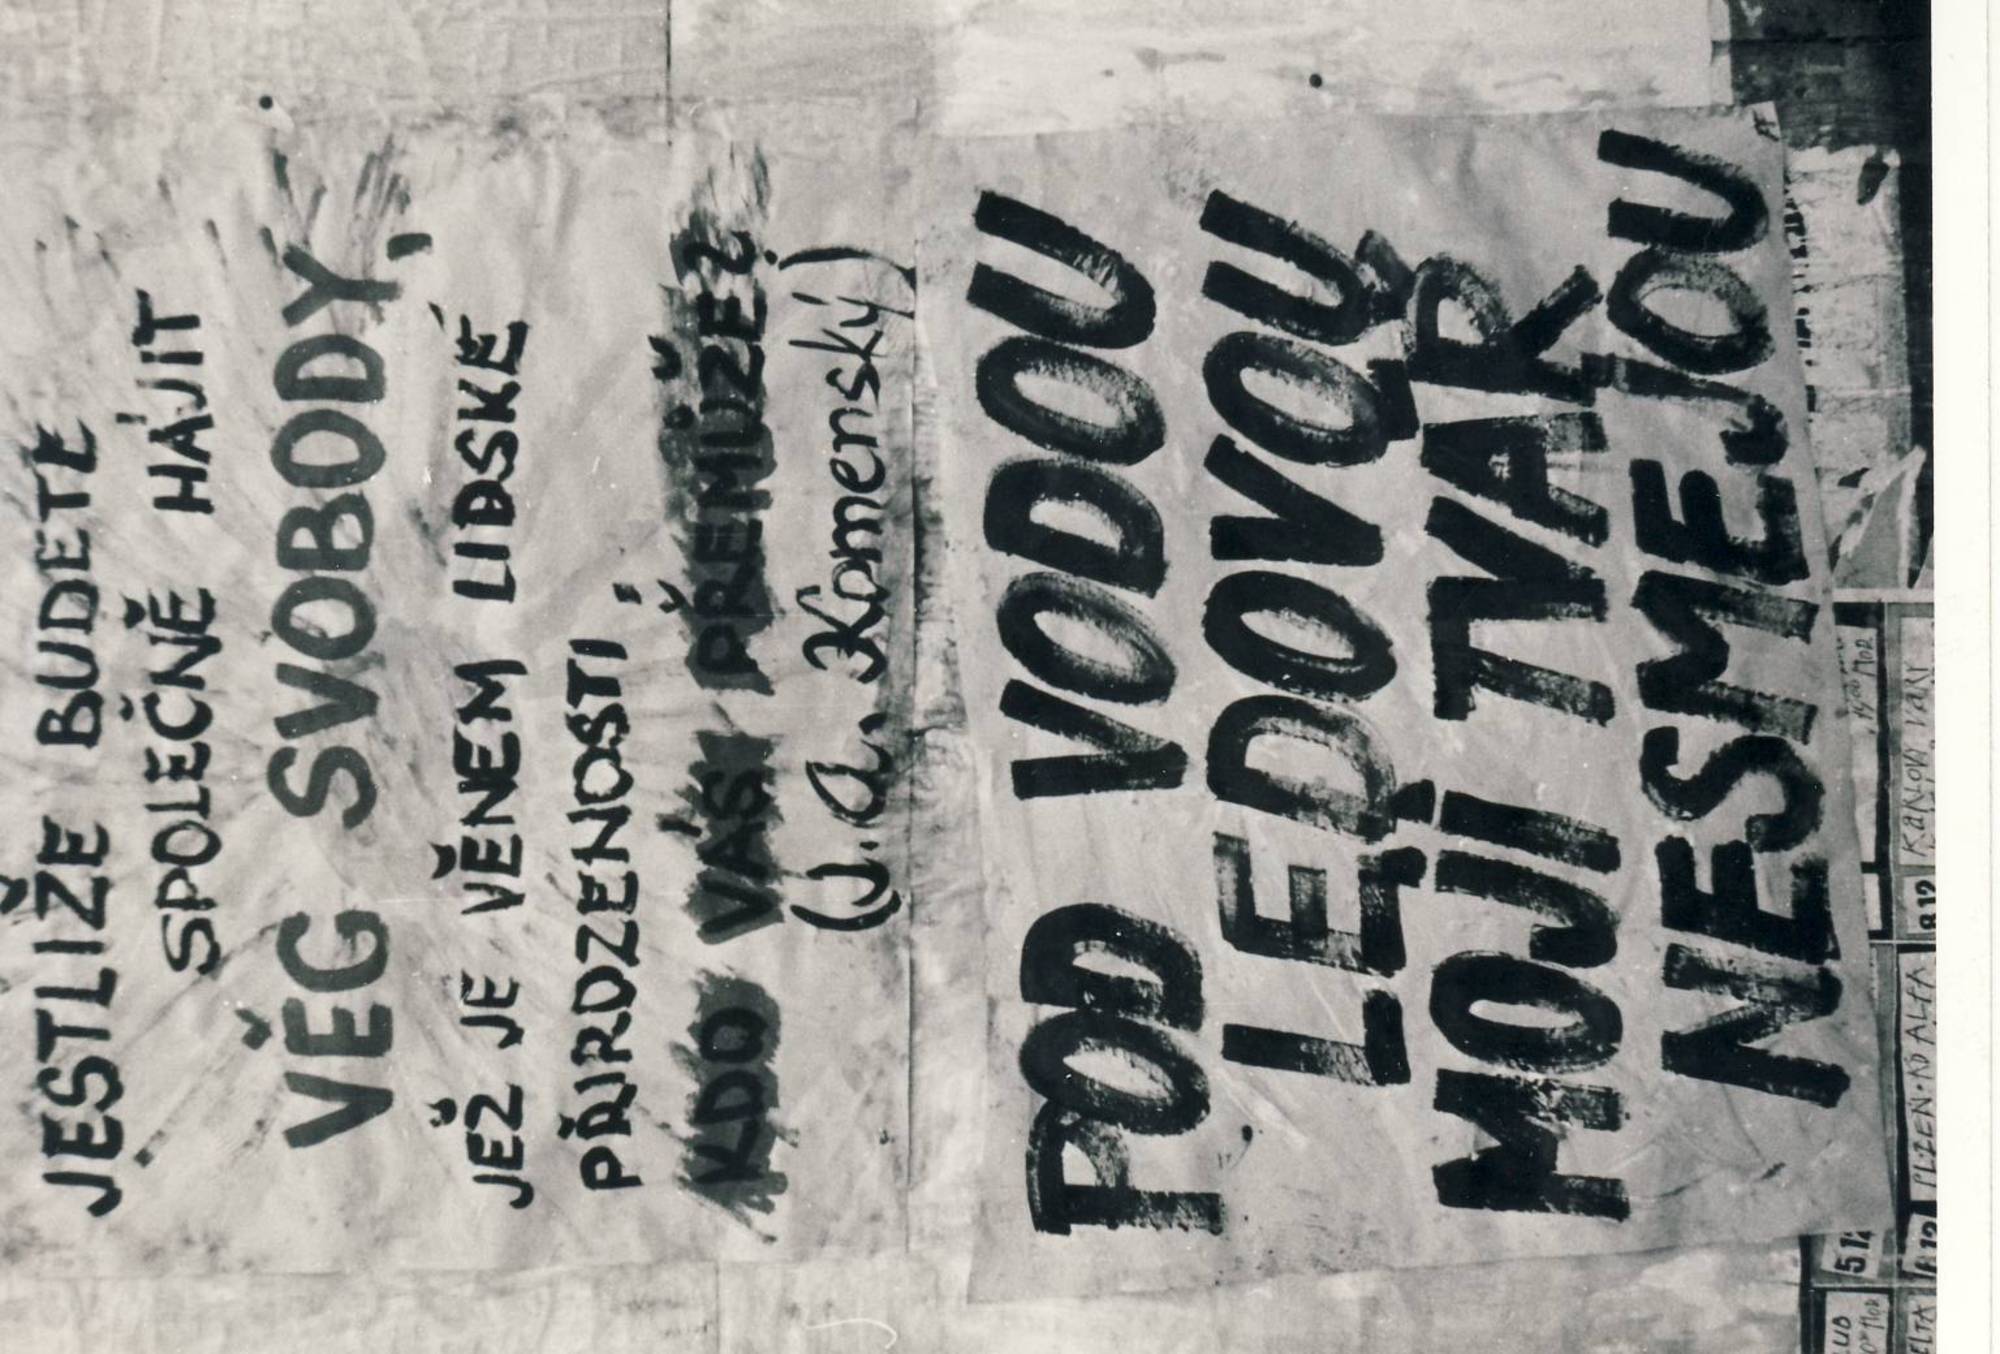 JESTLIŽE BUDETE
SPOLEČNĚ HÁJIT
VĚC SVOBODY,
JEŽ JE VĚNEM LIDSKÉ
PŘIRDZENOSTI -
KDO VÁS PŘEMŮŽE?
(J.A. Komenský)
POD VODOU
LEDOVOU
MOJI TVÁŘ
NESMEJOU
512
PLZEN-KD ALFA
812
KARLOVY VARY